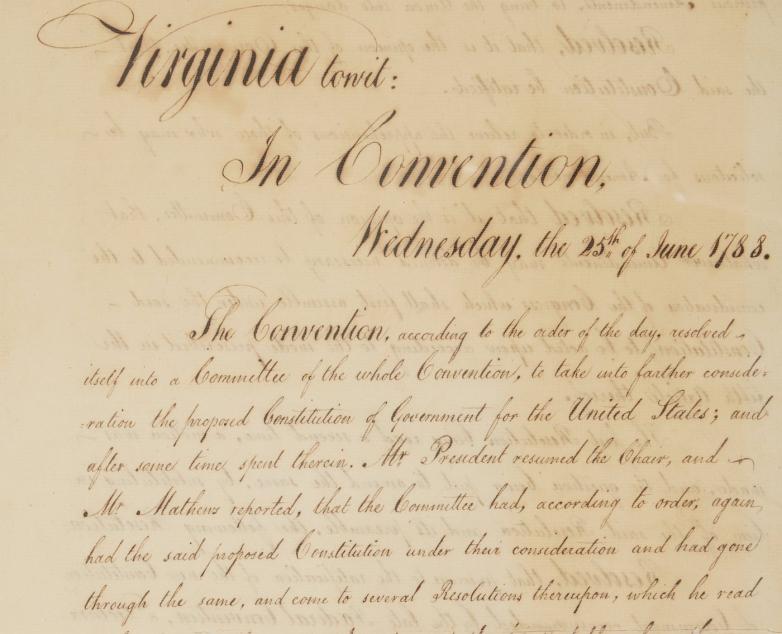 Virginia towit:
In Convention,
Wednesday, the 25th of June 1788.
The Convention, according to the order of the day, resolved
itself into a Committee of the whole Convention, to take into farther conside-
-ration the proposed Constitution of Government for the United States; and
after some time spent therein, Mr President resumed the Chair, and
Mr Mathews reported, that the Committee had, according to order, again
had the said proposed Constitution under their consideration and had gone
through the same, and come to several Resolutions thereupon, which he read